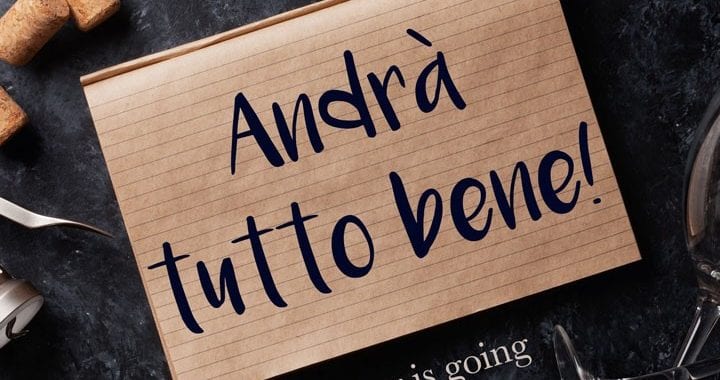 Andrà
tutto bene!
is going